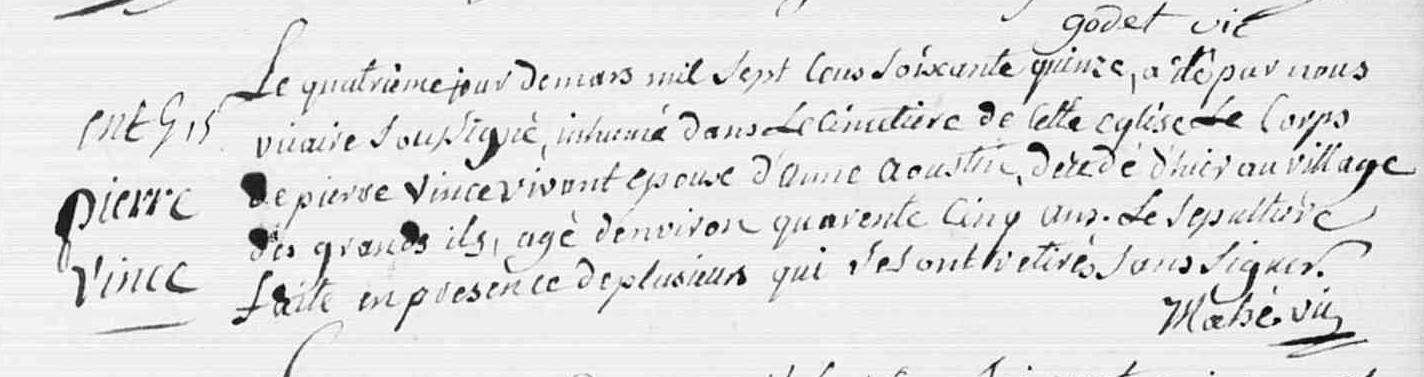 godet vic
Le quatrième jour de mars mil sept cens soixante quinze, a été par nous
vicaire soussigné, inhumé dans le cimetiere de cette eglise le corps
de pierre vince vivant epoux d'anne aoustin, décédé d'hier au village
des grands ils, agé denviron quarente cinq ans. Le sepulture
faite en presence de plusieurs qui se sont retirés sans signer.
Mahé vic
ent G 15
pierre
vince